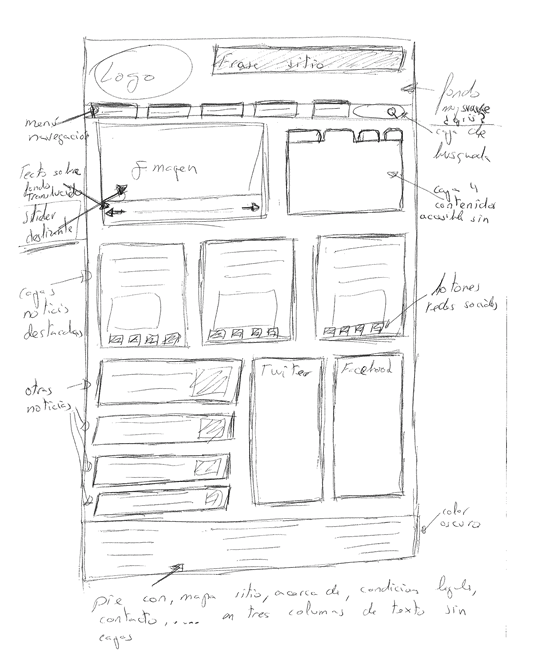 Logo
Frase sitio
fondo
muy suave
¿gris?
menú
navegación
Q
caja de
busqueda
Imagen
Texto sobre
fondo
translucido
Slider
deslizante
caja 4
contenidos
accesible sin
cajas
noticias
destacadas
botones
redes sociales
otras
noticias
Twitter
Facebook
color
oscuro
pie con, mapa sitio, acerca de, condicion legales,
contacto, ..... en tres columas de texto sin
cajas